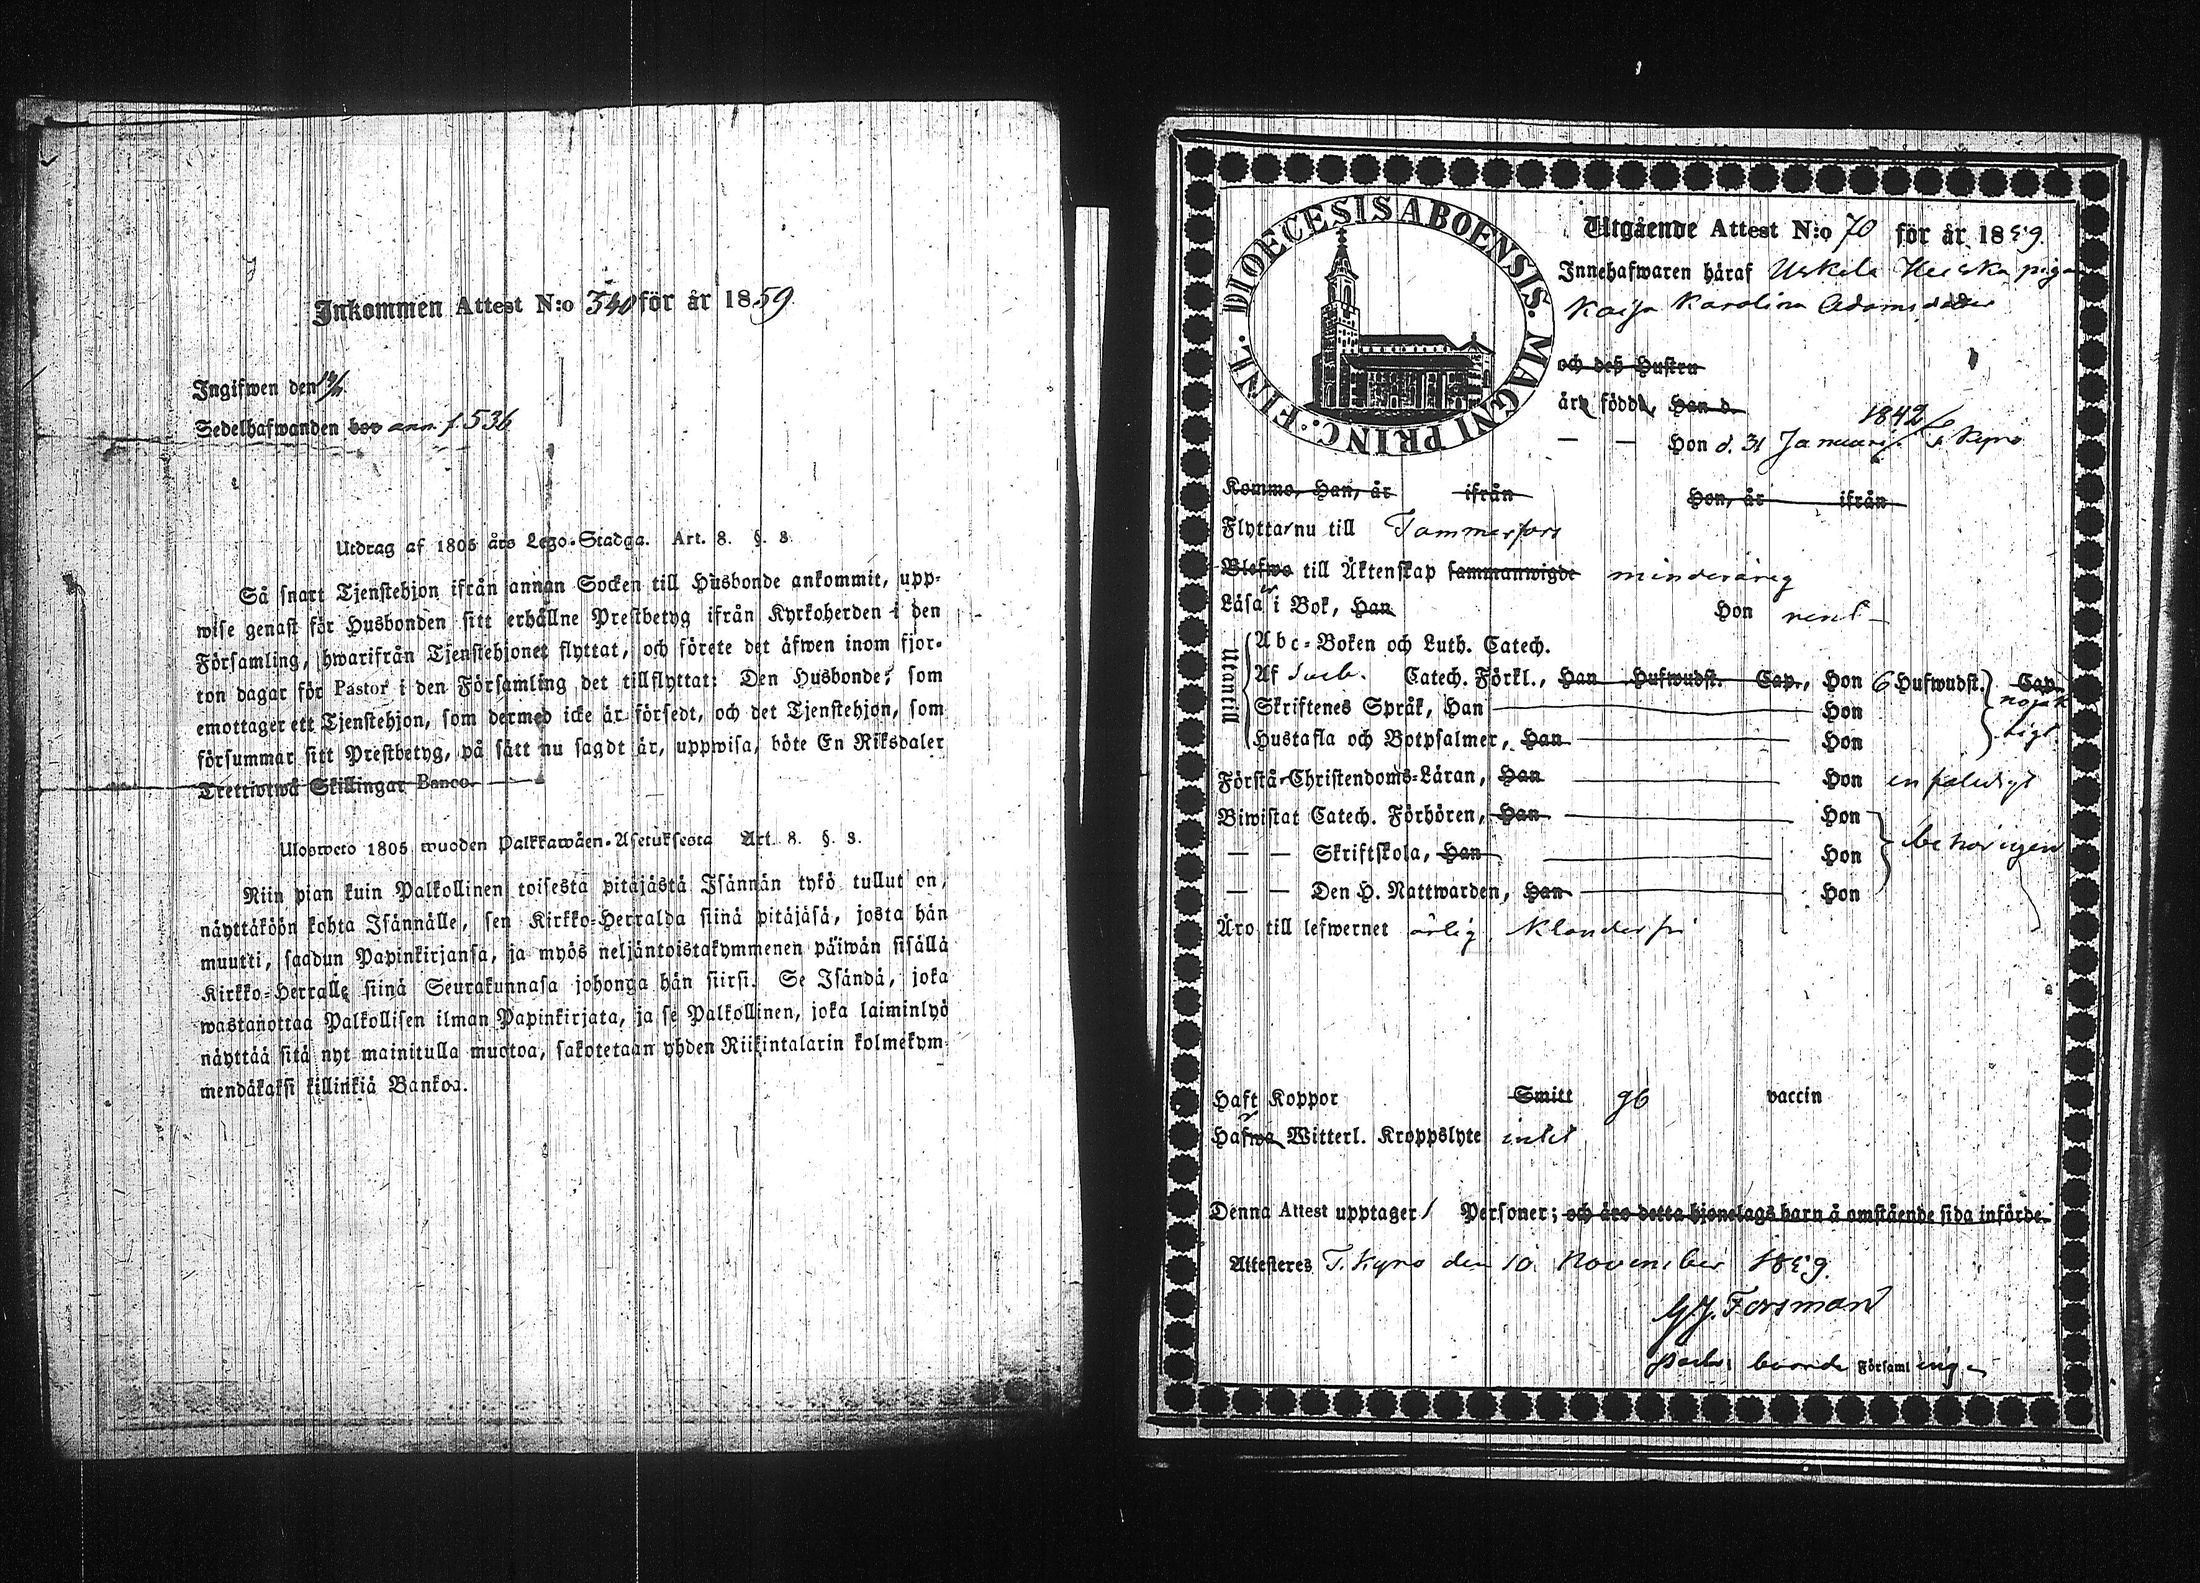 Inkommen Attest N:o 340 för år 1859
Ingifwen den
Sedelhafwanden bor ann. f. 536
Utdrag af 1805 års Lego-Stadga. Art. 8. §. 8.
Så snart Tjenstehjon ifrån annan Socken till Husbonde ankommit, upp-
wise genast för Husbonden sitt erhållne Prestbetyg ifrån Kyrkoherden i den
Församling, hwarifrån Tjenstehjonet flyttat, och förete det äfwen inom fjor-
ton dagar för Pastor i den Församling det tillflyttat: Den Husbonde, som
emottager ett Tjenstehjon, som dermed icke är försedt, och det Tjenstehjon, som
försummar sitt Prestbetyg, på sätt nu sagdt är, uppwisa, böte En Riksdaler
Trettiotwå Skillingar Banco.
Ulosweto 1805 wuoden Palkkawäen-Asetuksesta Art. 8. §. 8.
Niin pian kuin Palkollinen toisesta pitäjästä Isännän tykö tullut on,
näyttäköön kohta Isännälle, sen Kirkko-Herralda siinä pitäjäsä, josta hän
muutti, saadun Papinkirjansa, ja myös neljäntoistakymmenen päiwän sisällä
Kirkko-Herralle siinä Seurakunnasa johonga hän siirsi. Se Isändä, joka
wastanottaa Palkollisen ilman Papinkirjata, ja se Palkollinen, joka laiminlyö
näyttää sitä nyt mainitulla muotoa, sakotetaan yhden Riikintalarin kolmekym-
mendäkaksi killinkiä Bankoa.
DIOECESIS ABOENSIS. MAGNI PRINC. FINL.
Utgående Attest N:o 70 för år 1859.
Innehafwaren häraf pigan
Kaisa Karolina Adamsdotter
och deß Hustru
äro födde, Han d.
1842
— — Hon d. 31 Januarij i Kyro
Komme, Han, år ifrån Hon, år ifrån
Flytta nu till Tammerfors
Blefwo till Äktenskap sammanwigde minderårig
Läsa i Bok, Han Hon rent
Utantill
Abc-Boken och Luth. Catech.
Af Sveb. Catech. Förkl., Han Hufwudst. Cap., Hon 6 Hufwudst. Cap.
Skriftenes Språk, Han Hon nöjak
Hustafla och Botpsalmer, Han Hon tigt
Förstå Christendoms-Läran, Han Hon enfaldigt
Biwistat Catech. Förhören, Han Hon
— — Skriftskola, Han Hon behörigen
— — Den H. Nattwarden, Han Hon
Äro till lefwernet ärlig klanderfri
Haft Koppor Smitt gb vaccin
Hafwa Witterl. Kroppslyte intet
Denna Attest upptager 1 Personer; och äro detta hjonelags barn å omstående sida införde.
Attesteres T. Kyro den 10 November 1859.
G.J. Forsman
Församlingen